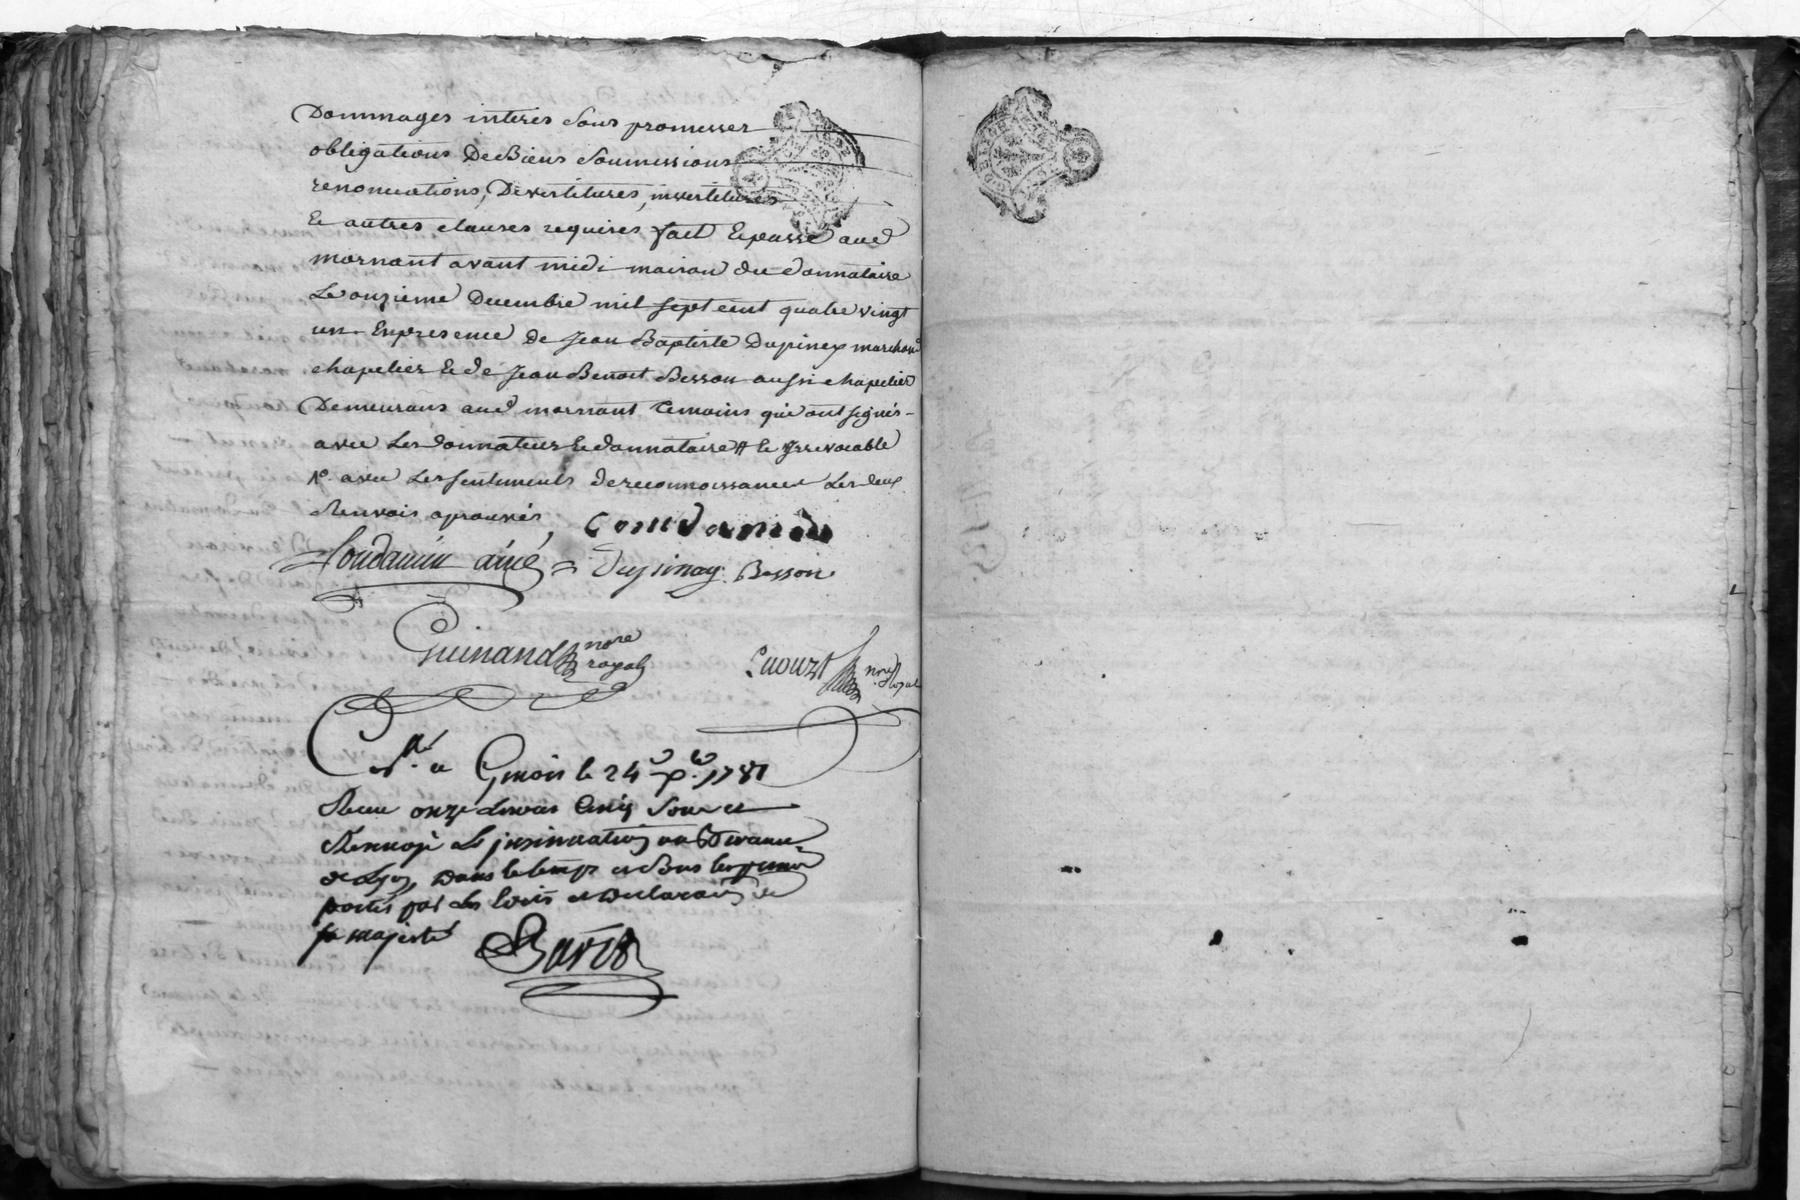 Dommages interes sous promesses
obligations De Biens soumissions
renonciations, Devestitures, investitures
Et autres clauses requises fait Et passé aud
mornant avant midi maison du donnataire
Le onzieme Decembre mil sept cent quatre vingt
un En presence de Jean Baptiste Dupiney marchand
chapelier Et de Jean Benoit Besson aussi chapelier
Demeurans aud mornant temoins qui ont signés
avec Les donnateur Et donnataire # Et Irrevocable
Po. avec Les sentiments de reconnoissances Les deux
Renvois aprouvés
Condamin
Condamin ainé Dupinay Besson
Guinand nore royal
nre Royal
Con.lé a Givors le 24 Xbre 1781
Receu onze Livres Cinq Sous et
Renvoyé Le insinuation au Bureau
de Lyon, Dans le temps et Sous les peines
portés par Les Edits et Declaraons de
sa majesté
Baret